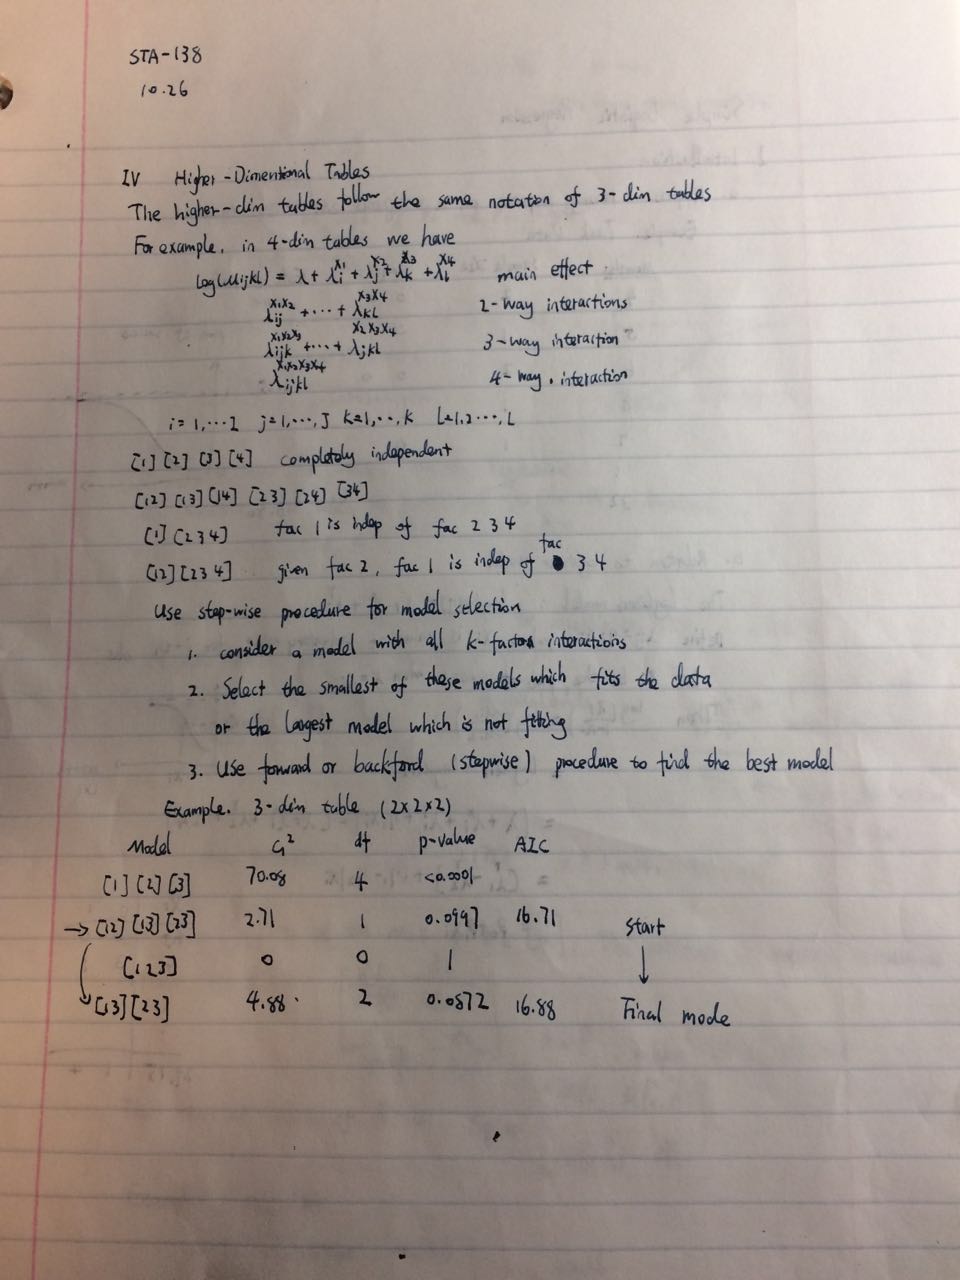 STA-138
10.26
IV Higher-Dimentional Tables
The higher-dim tables follow the same notation of 3-dim tables
For example, in 4-dim tables we have
log(μijkl) = λ + λi^X1 + λj^X2 + λk^X3 + λl^X4 main effect
λij^X1X2 + ··· + λkl^X3X4 2-way interactions
λijk^X1X2X3 + ··· + λjkl^X2X3X4 3-way interaction
λijkl^X1X2X3X4 4-way interaction
i=1,···I j=1,···,J k=1,··,K l=1,2···,L
[1] [2] [3] [4] completely independent
[12] [13] [14] [23] [24] [34]
[1] [234] fac 1 is indep of fac 2 3 4
[12][234] given fac 2, fac 1 is indep of fac 3 4
Use step-wise procedure for model selection
1. consider a model with all k-factors interactions
2. Select the smallest of these models which fits the data
or the largest model which is not fitting
3. Use forward or backford (stepwise) procedure to find the best model
Example. 3-dim table (2x2x2)
Model G² df p-value AIC
[1] [2] [3] 70.08 4 <0.0001
→ [12] [13] [23] 2.71 1 0.0997 16.71 Start
[123] 0 0 1 ↓
[13][23] 4.88 2 0.0872 16.88 Final mode